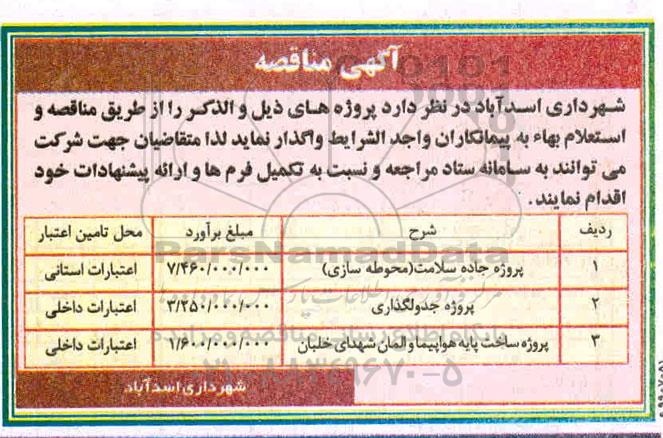 آگهی مناقصه
شهرداری اسدآباد در نظر دارد پروژه های ذیل و الذکر را از طریق مناقصه و
استعلام بهاء به پیمانکاران واجد الشرایط واگذار نماید لذا متقاضیان جهت شرکت
می توانند به سامانه ستاد مراجعه و نسبت به تکمیل فرم ها و ارائه پیشنهادات خود
اقدام نمایند.
ردیف شرح مبلغ برآورد محل تامین اعتبار
۱ پروژه جاده سلامت(محوطه سازی) ۷/۴۶۰/۰۰۰/۰۰۰ اعتبارات استانی
ParsNamadData
۲ پروژه جدولگذاری ۳/۲۵۰/۰۰۰/۰۰۰ اعتبارات داخلی
۳ پروژه ساخت پایه هواپیما و المان شهدای خلبان ۱/۶۰۰/۰۰۰/۰۰۰ اعتبارات داخلی
۰۲۱-۸۸۳۴۹۶۷۰-۵
شهرداری اسدآباد